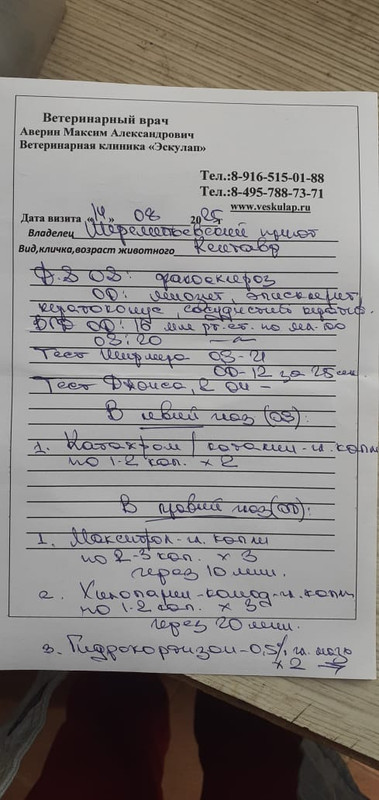 Ветеринарный врач
Аверин Максим Александрович
Ветеринарная клиника «Эскулап»
Тел.:8-916-515-01-88
Тел.:8-495-788-73-71
www.veskulap.ru
Дата визита «14» 08 2025г
Владелец Шереметьевский приют
Вид,кличка,возраст животного Кентавр
Ф.З OS: факосклероз
OD: эписклерит,
кератоконус, сосудистый
ВГД OD: 16 мм рт.ст. по
OS: 20 —~—
Тест Ширмера OS-21
OD-12 за
Тест Джонса, 2 —
В левый глаз (OS):
1. Катахром / - гл. капли
по 1-2 кап. х 2
В правый глаз (OD):
1. Макситрол - гл. капли
по 2-3 кап. х 3
через 10 мин.
2. Хилопарин-комод - гл. капли
по 1-2 кап. х 3
через 20 мин.
3. Гидрокортизон - 0,5% гл. мазь
х 2 →